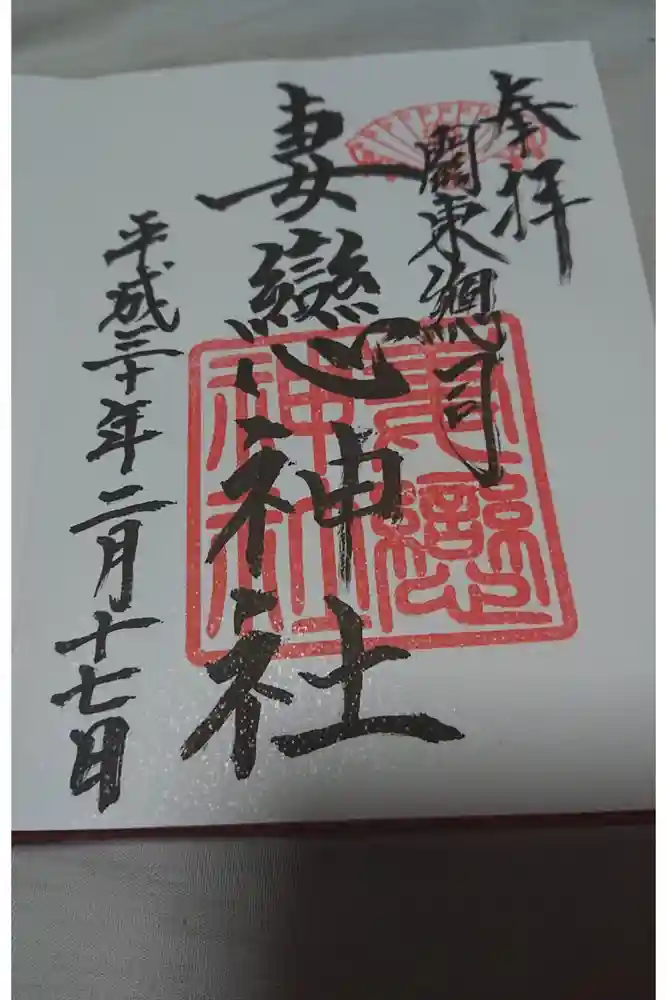 奉拝
關東總司
妻戀神社
妻戀神社
平成三十年二月十七日